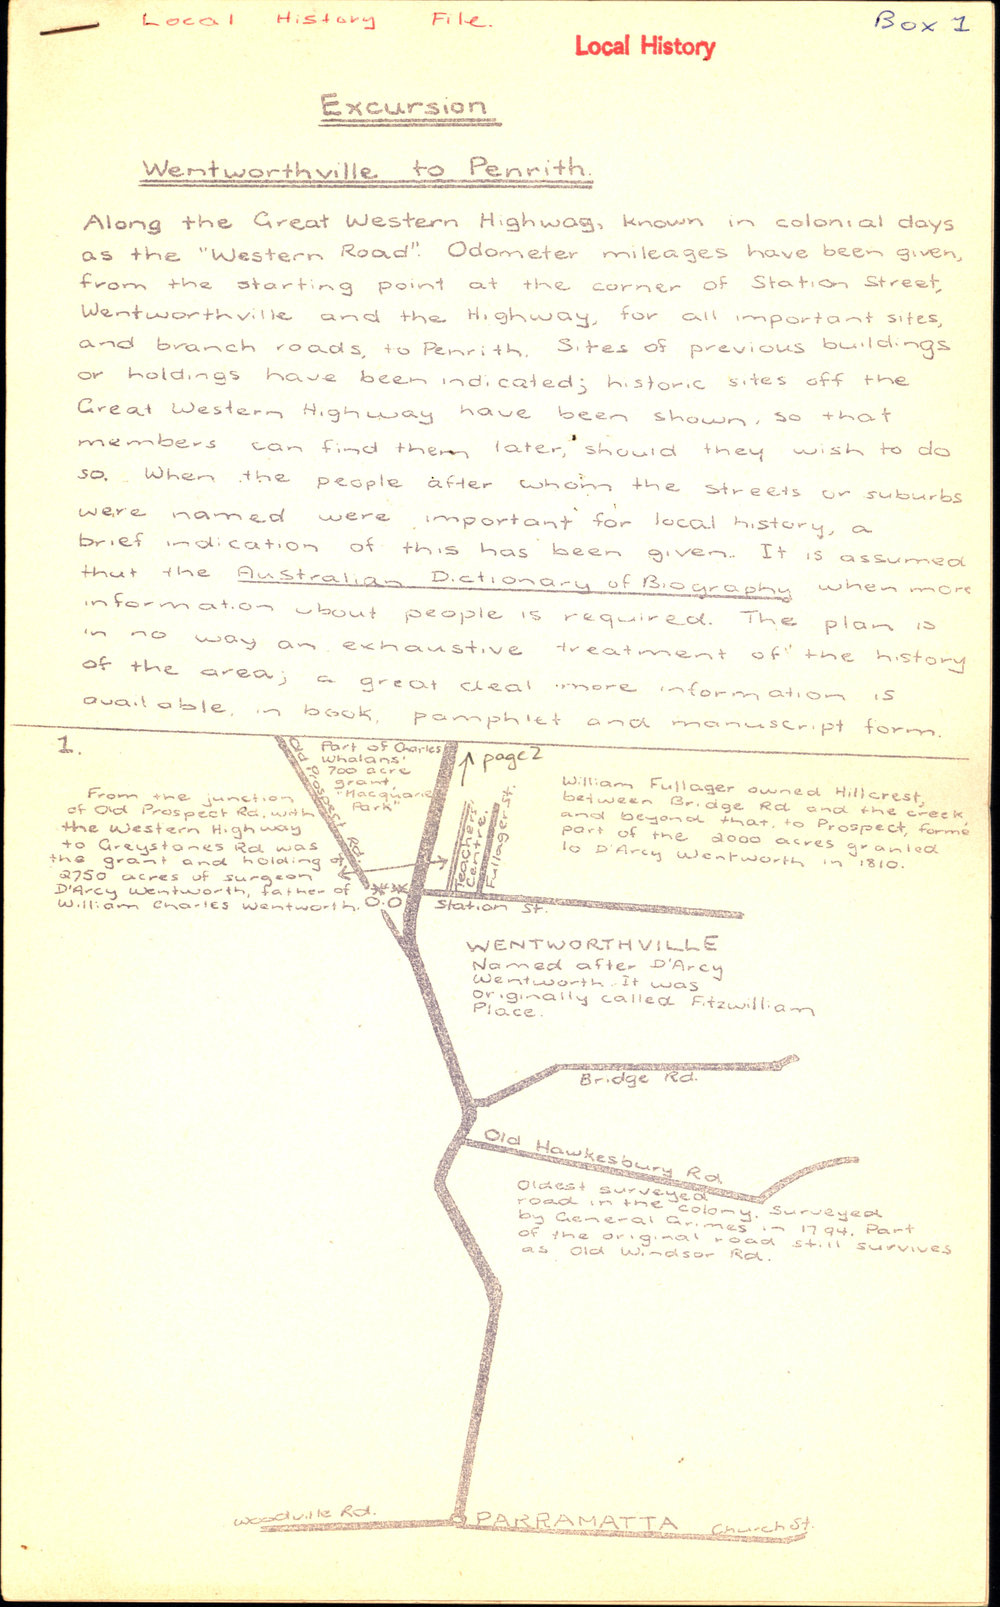 Local History File.
Box 1
Local History
Excursion
Wentworthville to Penrith.
Along the Great Western Highway, known in colonial days
as the "Western Road". Odometer mileages have been given,
from the starting point at the corner of Station Street,
Wentworthville and the Highway, for all important sites,
and branch roads, to Penrith. Sites of previous buildings
or holdings have been indicated; historic sites off the
Great Western Highway have been shown, so that
members can find them later, should they wish to do
so. When the people after whom the streets or suburbs
were named were important for local history, a
brief indication of this has been given. It is assumed
that the Australian Dictionary of Biography when more
information about people is required. The plan is
in no way an exhaustive treatment of the history
of the area; a great deal more information is
available, in book, pamphlet and manuscript form.
1.
Old Prospect Rd.
Part of Charles
Whalans'
700 acre
grant
"Macquarie
Park"
page 2
Teachers'
Centre.
Fullager St.
William Fullager owned Hillcrest,
between Bridge Rd and the creek,
and beyond that, to Prospect, forme
part of the 2000 acres granted
to D'Arcy Wentworth in 1810.
From the junction
of Old Prospect Rd, with
the Western Highway
to Greystones Rd was
the grant and holding of
2750 acres of surgeon
D'Arcy Wentworth, father of
William Charles Wentworth.
0.0
Station St.
WENTWORTHVILLE
Named after D'Arcy
Wentworth. It was
originally called Fitzwilliam
Place.
Bridge Rd.
Old Hawkesbury Rd
Oldest surveyed
road in the colony. Surveyed
by General Grimes in 1794. Part
of the original road still survives
as Old Windsor Rd.
Woodville Rd.
PARRAMATTA
Church St.